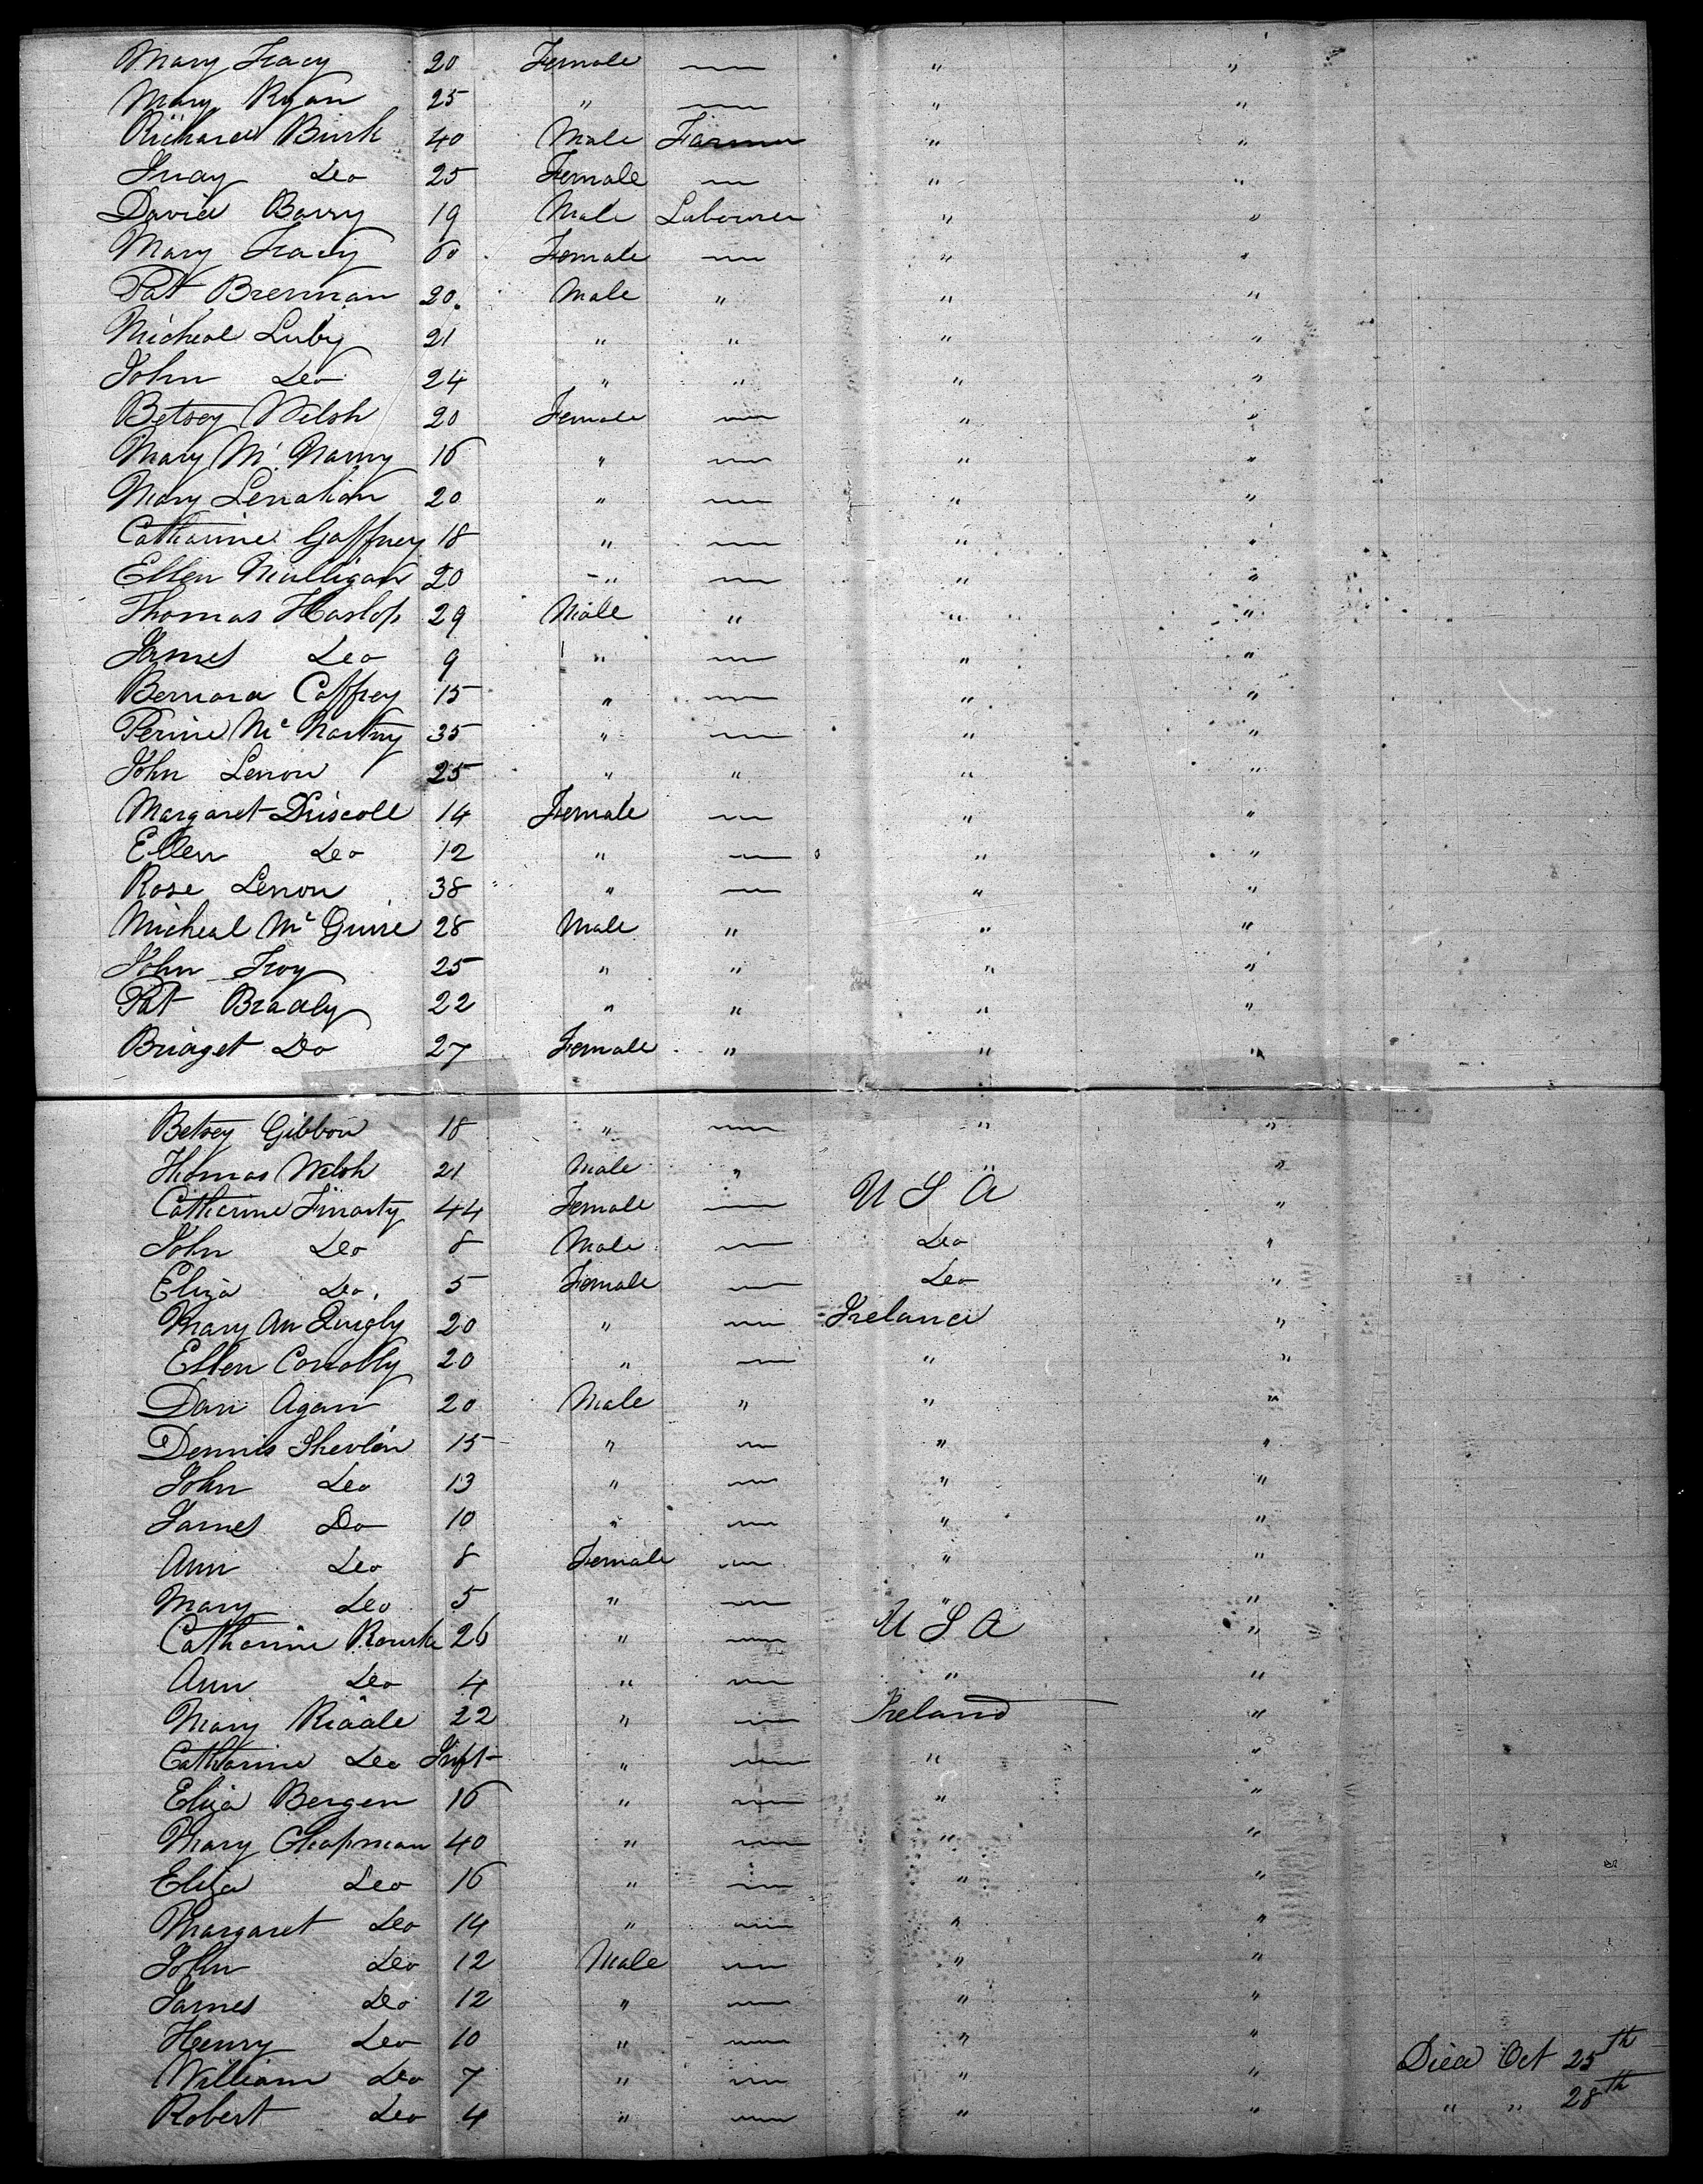 Mary Tracy 20 Female — " "
Mary Ryan 25 " — " "
Richard Burk 40 Male Farmer " "
Do 25 Female — " "
David Barry 19 Male Labourer " "
Mary Tracy 60 Female — " "
Pat Brennan 20 Male " " "
Micheal Luby 21 " " " "
John Do 24 " " " "
Betsey Welsh 20 Female — " "
Mary Mc 16 " — " "
Mary Lenahan 20 " — " "
Catharine Gaffney 18 " — " "
Ellen Mulligan 20 " — " "
Thomas Haslop 29 Male " " "
James Do 9 " — " "
Bernard Caffrey 15 " — " "
Mc 35 " — " "
John Lenon 25 " " " "
Margaret Driscoll 14 Female — " "
Ellen Do 12 " — " "
Rose Lenon 38 " — " "
Micheal Mc Guire 28 Male " " "
John Troy 25 " " " "
Pat Bradly 22 " " " "
Bridget Do 27 Female " " "
Betsey Gibbon 18 " — " "
Thomas Welsh 21 Male " " "
Catharine Finarty 44 Female — U S A "
John Do 8 Male — Do "
Eliza Do 5 Female — Do "
Mary An Quigly 20 " — Ireland "
Ellen Conolly 20 " — " "
Dan Agan 20 Male " " "
Dennis Shevlin 15 " — " "
John Do 13 " — " "
James Do 10 " — " "
Ann Do 8 Female — " "
Mary Do 5 " — " "
Catharine Rourke 26 " — U S A "
Ann Do 4 " — " "
Mary Riddle 22 " — Ireland "
Catharine Do Inft " — " "
Eliza Bergen 16 " — " "
Mary Chapman 40 " — " "
Eliza Do 16 " — " "
Margaret Do 14 " — " "
John Do 12 Male — " "
James Do 12 " — " "
Henry Do 10 " — " "
William Do 7 " — " " Died Oct 25th
Robert Do 4 " — " " " " 28th